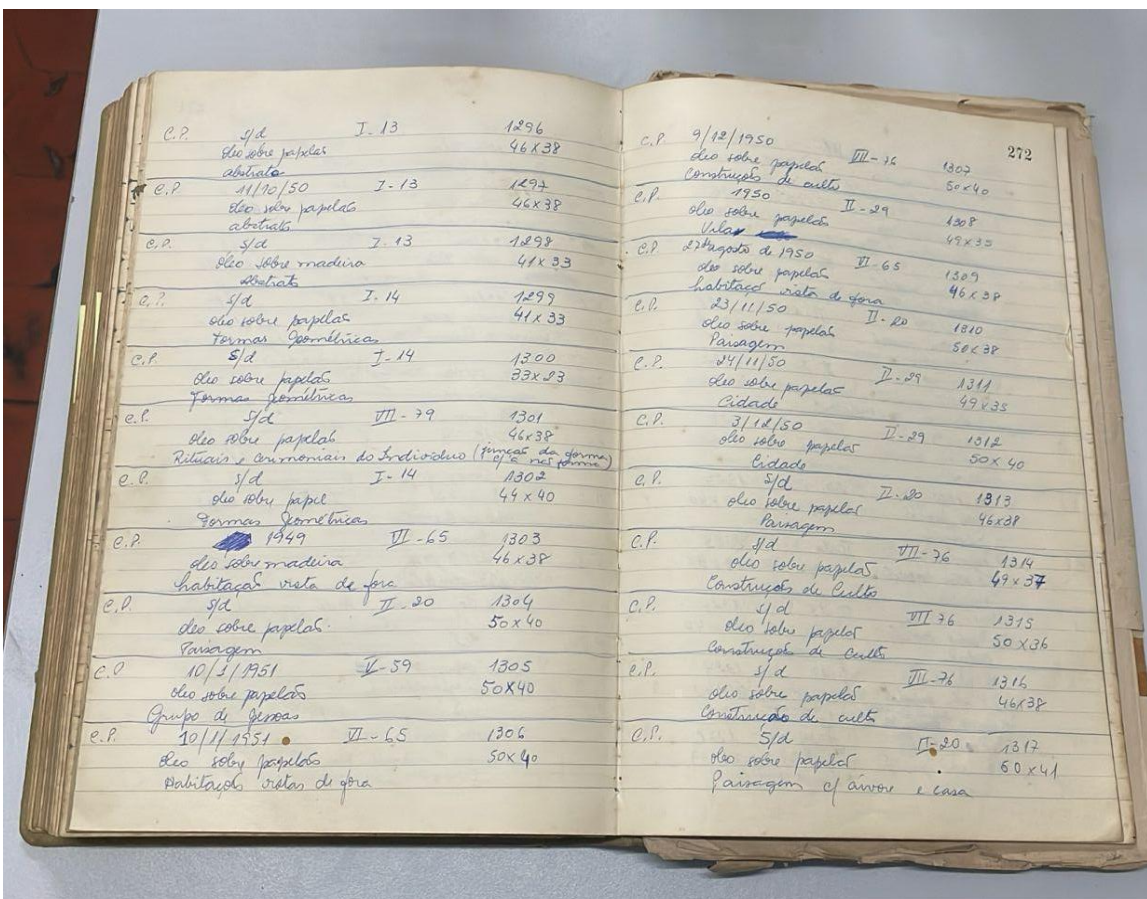 C.P. s/d I-13 1296
óleo sobre papelão 46x38
abstrato
C.P. 11/10/50 I-13 1297
óleo sobre papelão 46x38
abstrato
C.P. s/d I-13 1298
óleo sobre madeira 41x33
Abstrato
C.P. s/d I-14 1299
óleo sobre papelão 41x33
Formas Geométricas
C.P. s/d I-14 1300
óleo sobre papelão 33x23
Formas Geométricas
C.P. s/d VII-79 1301
óleo sobre papelão 46x38
Rituais e Cerimoniais do Indivíduo (função da forma
C.P. s/d I-14 1302
óleo sobre papel 44x40
Formas Geométricas
C.P. 1949 VI-65 1303
óleo sobre madeira 46x38
habitação vista de fora
C.P. s/d II-20 1304
óleo sobre papelão 50x40
Paisagem
C.P. 10/1/1951 V-59 1305
óleo sobre papelão 50x40
Grupo de pessoas
C.P. 10/1/1951 VI-65 1306
óleo sobre papelão 50x40
Habitações vistas de fora
272
C.P. 9/12/1950 VII-76 1307
óleo sobre papelão 50x40
Construções de culto
C.P. 1950 II-29 1308
óleo sobre papelão 49x35
Vila
C.P. 27 agosto de 1950 VI-65 1309
óleo sobre papelão 46x38
habitação vista de fora
C.P. 23/11/50 II-20 1310
óleo sobre papelão 50x38
Paisagem
C.P. 24/11/50 II-29 1311
óleo sobre papelão 49x35
Cidade
C.P. 3/12/50 II-29 1312
óleo sobre papelão 50x40
Cidade
C.P. s/d II-20 1313
óleo sobre papelão 46x38
Paisagem
C.P. s/d VII-76 1314
óleo sobre papelão 49x37
Construções de Culto
C.P. s/d VII 76 1315
óleo sobre papelão 50x36
Construções de culto
C.P. s/d VII-76 1316
óleo sobre papelão 46x38
Construção de culto
C.P. S/d II-20 1317
óleo sobre papelão 60x41
Paisagem c/ árvore e casa